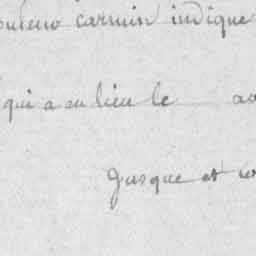 carmin indique
qui a eu lieu le
Jusque et